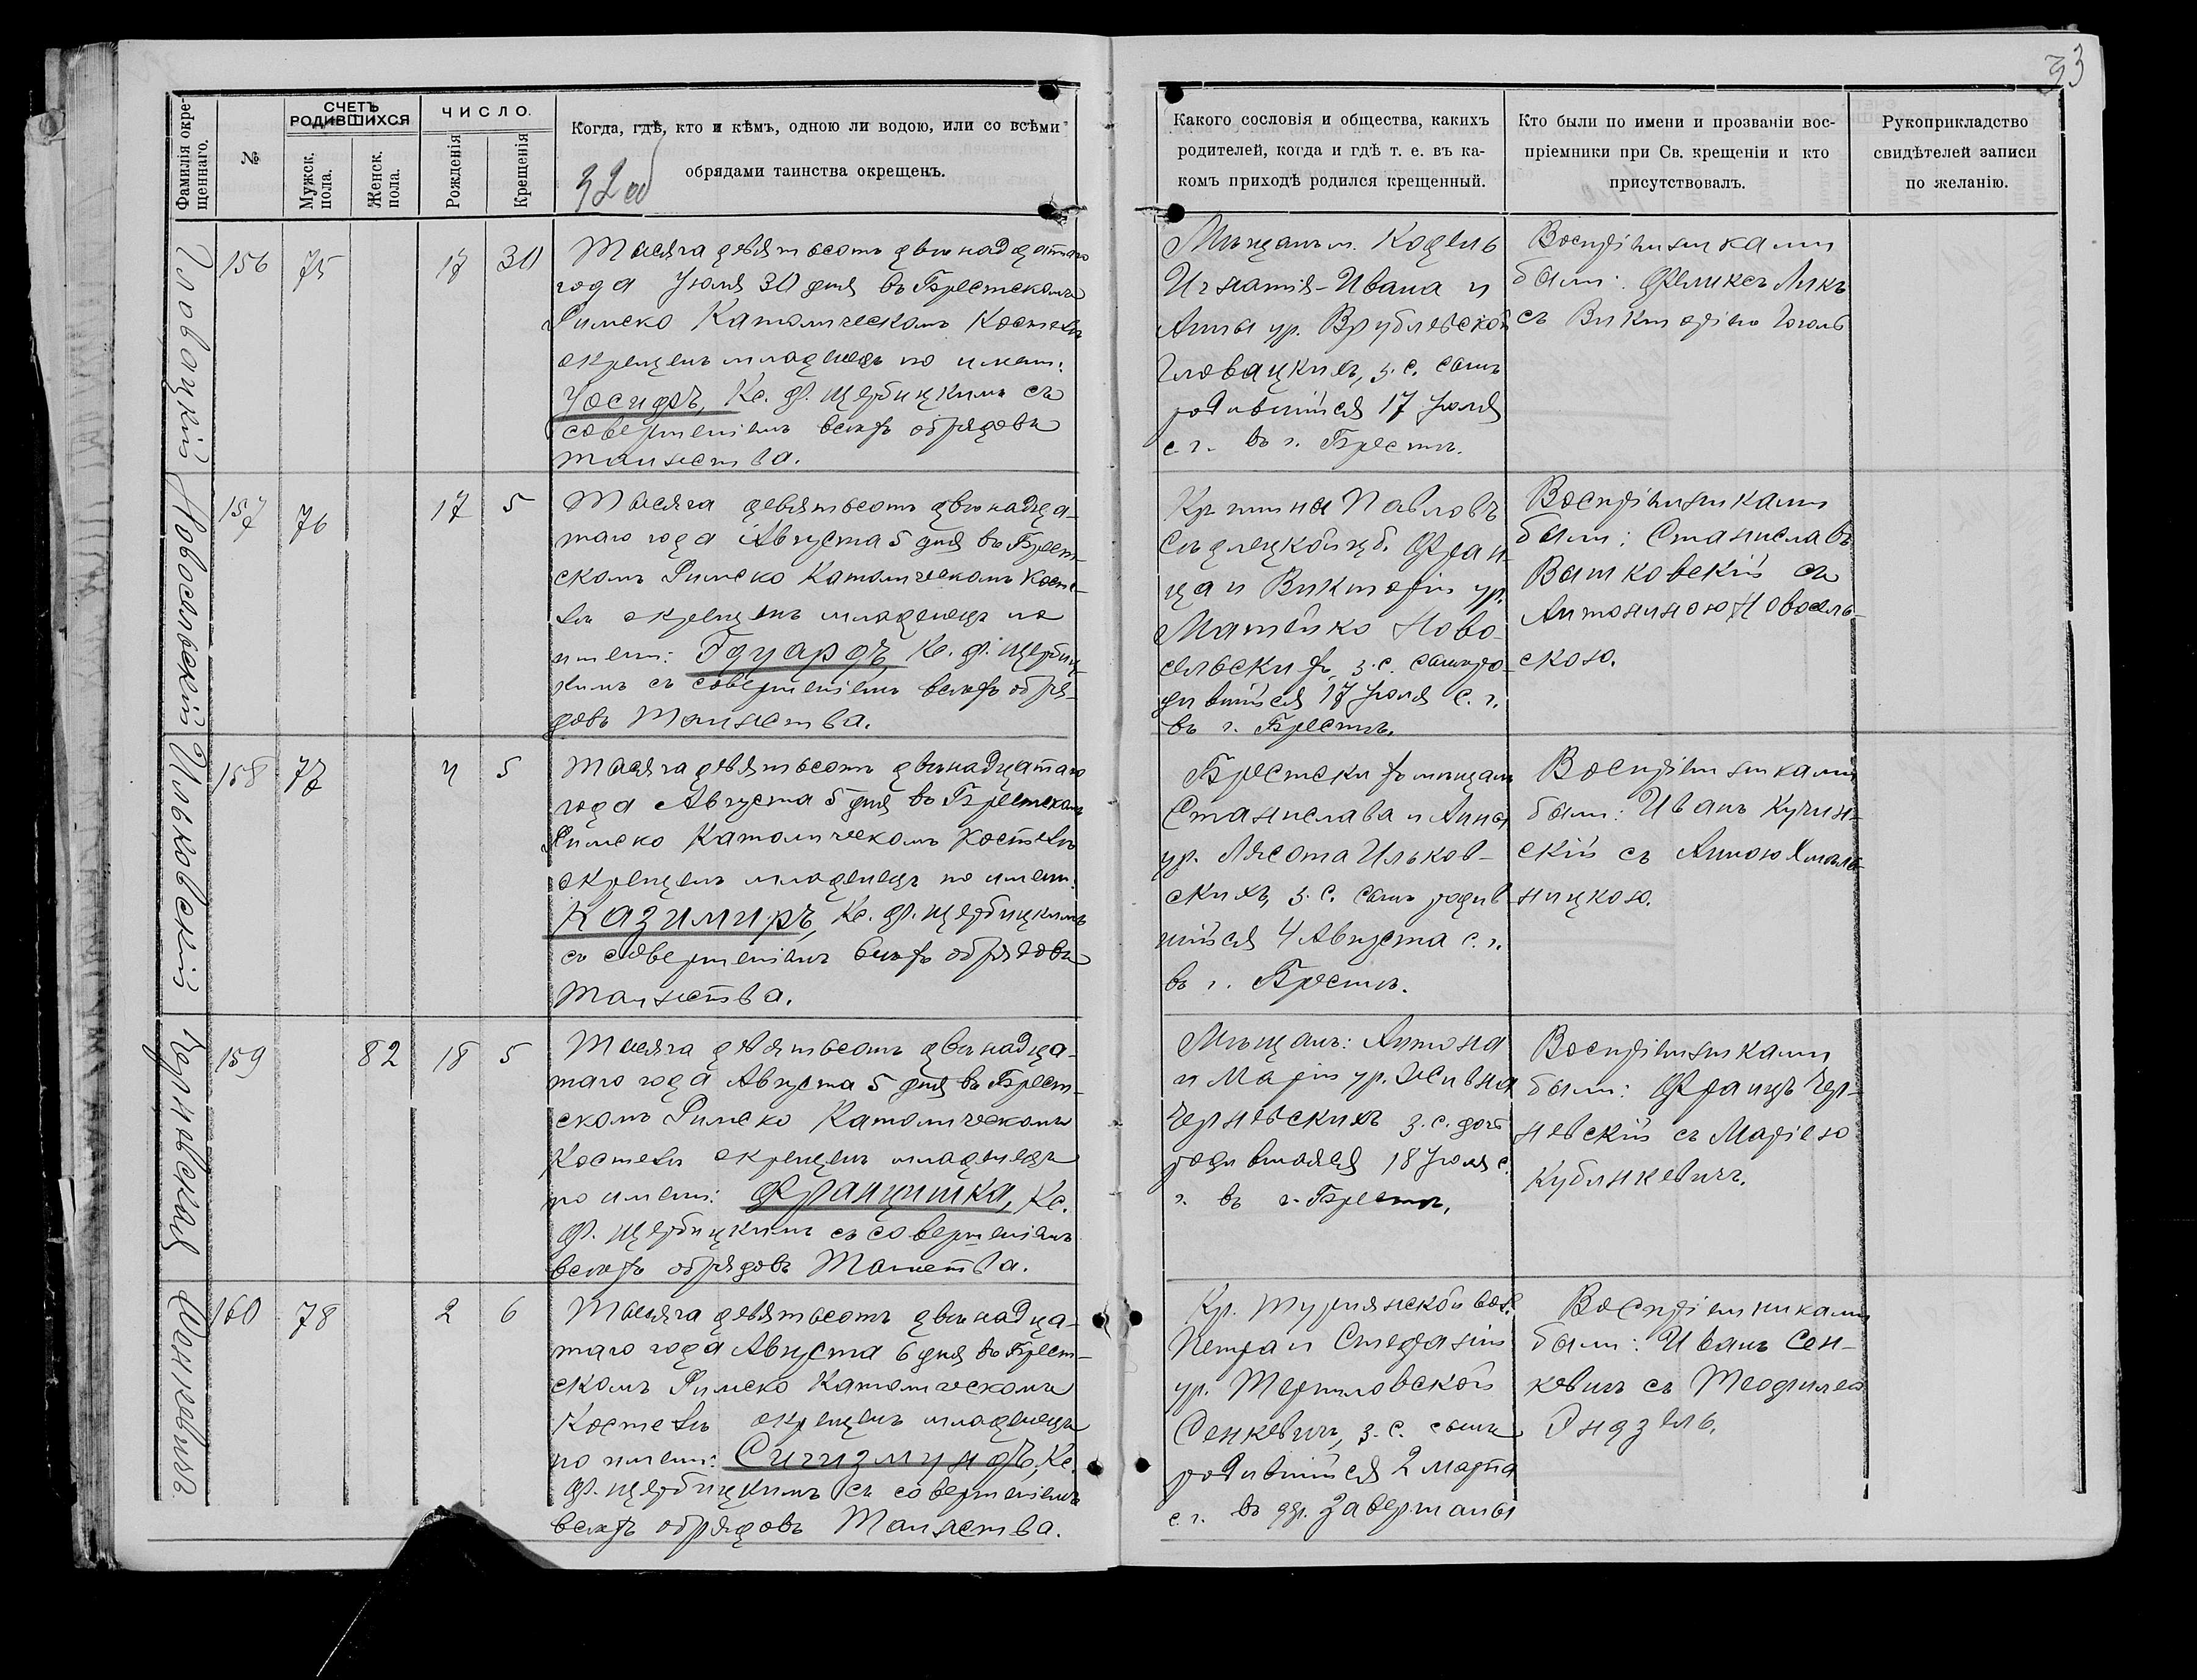 33
Фамилія окре-
щеннаго.
№
СЧЕТЪ
РОДИВШИХСЯ
Мужск.
пола.
Женск.
пола.
ЧИСЛО.
Рожденія
Крещенія
Когда, гдѣ, кто и кѣмъ, одною ли водою, или со всѣми
обрядами таинства окрещенъ.
32 об
Какого сословія и общества, какихъ
родителей, когда и гдѣ т. е. въ ка-
комъ приходѣ родился крещенный.
Кто были по имени и прозваніи вос-
пріемники при Св. крещеніи и кто
присутствовалъ.
Рукоприкладство
свидѣтелей записи
по желанію.
Гловацкій
156
75
17
30
Тысяча девятьсотъ двѣнадцатаго
года Іюля 30 дня въ Брестскомъ
Римско Католическомъ Костелѣ
окрещенъ младенецъ по имени:
Іосифъ, Кс. Ф. Щербицкимъ съ
совершеніемъ всѣхъ обрядовъ
таинства.
Мѣщанъ м. Кодень
Игнатія-Ивана и
Анны ур. Врублевской
Гловацкихъ, з. с. сынъ
родившійся 17 Іюля
с. г. въ г. Брестѣ.
Воспріемниками
были: Феликсъ Ликъ
съ Викторіею Гоголь
Новосельскій
157
76
17
5
Тысяча девятьсотъ двѣнадца-
таго года Августа 5 дня въ Брест-
скомъ Римско Католическомъ Косте-
лѣ окрещенъ младенецъ по
имени: Эдуардъ Кс. Ф. Щербиц-
кимъ съ совершеніемъ всѣхъ обря-
довъ Таинства.
Кр. гмины Павловъ
Сѣдлецкой губ. Фран-
ца и Викторіи ур.
Матейко Ново-
сельскихъ, з. с. сынъ ро-
дившійся 17 Іюля с. г.
въ г. Брестѣ.
Воспріемниками
были: Станиславъ
Ватковскій съ
Антониною Новосель-
скою.
Ильковскій
158
77
4
5
Тысяча девятьсотъ двѣнадцатаго
года Августа 5 дня въ Брестскомъ
Римско Католическомъ Костелѣ
окрещенъ младенецъ по имени:
Казимиръ, Кс. Ф. Щербицкимъ
съ совершеніемъ всѣхъ обрядовъ
Таинства.
Брестскихъ мѣщанъ
Станислава и Анны
ур. Лясота Ильков-
скихъ, з. с. сынъ родив-
шійся 4 Августа с. г.
въ г. Брестѣ.
Воспріемниками
были: Иванъ Кучин-
скій съ Анною Хмѣль-
ницкою.
Чернѣвская
159
82
18
5
Тысяча девятьсотъ двѣнадца-
таго года Августа 5 дня въ Брест-
скомъ Римско Католическомъ
Костелѣ окрещенъ младенецъ
по имени: Францишка, Кс.
Ф. Щербицкимъ съ совершеніемъ
всѣхъ обрядовъ Таинства.
Мѣщанъ: Антона
и Маріи ур. Живна
Черневскихъ з. с. дочь
родившаяся 18 Іюля с.
г. въ г. Брестѣ.
Воспріемниками
были: Францъ Чер-
невскій съ Маріею
Кубликевичъ.
Сенкевичъ
160
78
2
6
Тысяча девятьсотъ двѣнадца-
таго года Августа 6 дня въ Брест-
скомъ Римско Католическомъ
Костелѣ окрещенъ младенецъ
по имени: Сигизмундъ, Кс.
Ф. Щербицкимъ съ совершеніемъ
всѣхъ обрядовъ Таинства.
Кр. Турнянской вол.
Петра и Стефаніи
ур. Терпиловской
Сенкевичъ, з. с. сынъ
родившійся 2 марта
с. г. въ дер. Заверманы
Воспріемниками
были: Иванъ Сен-
кевичъ съ Теофилею
Эндзель.